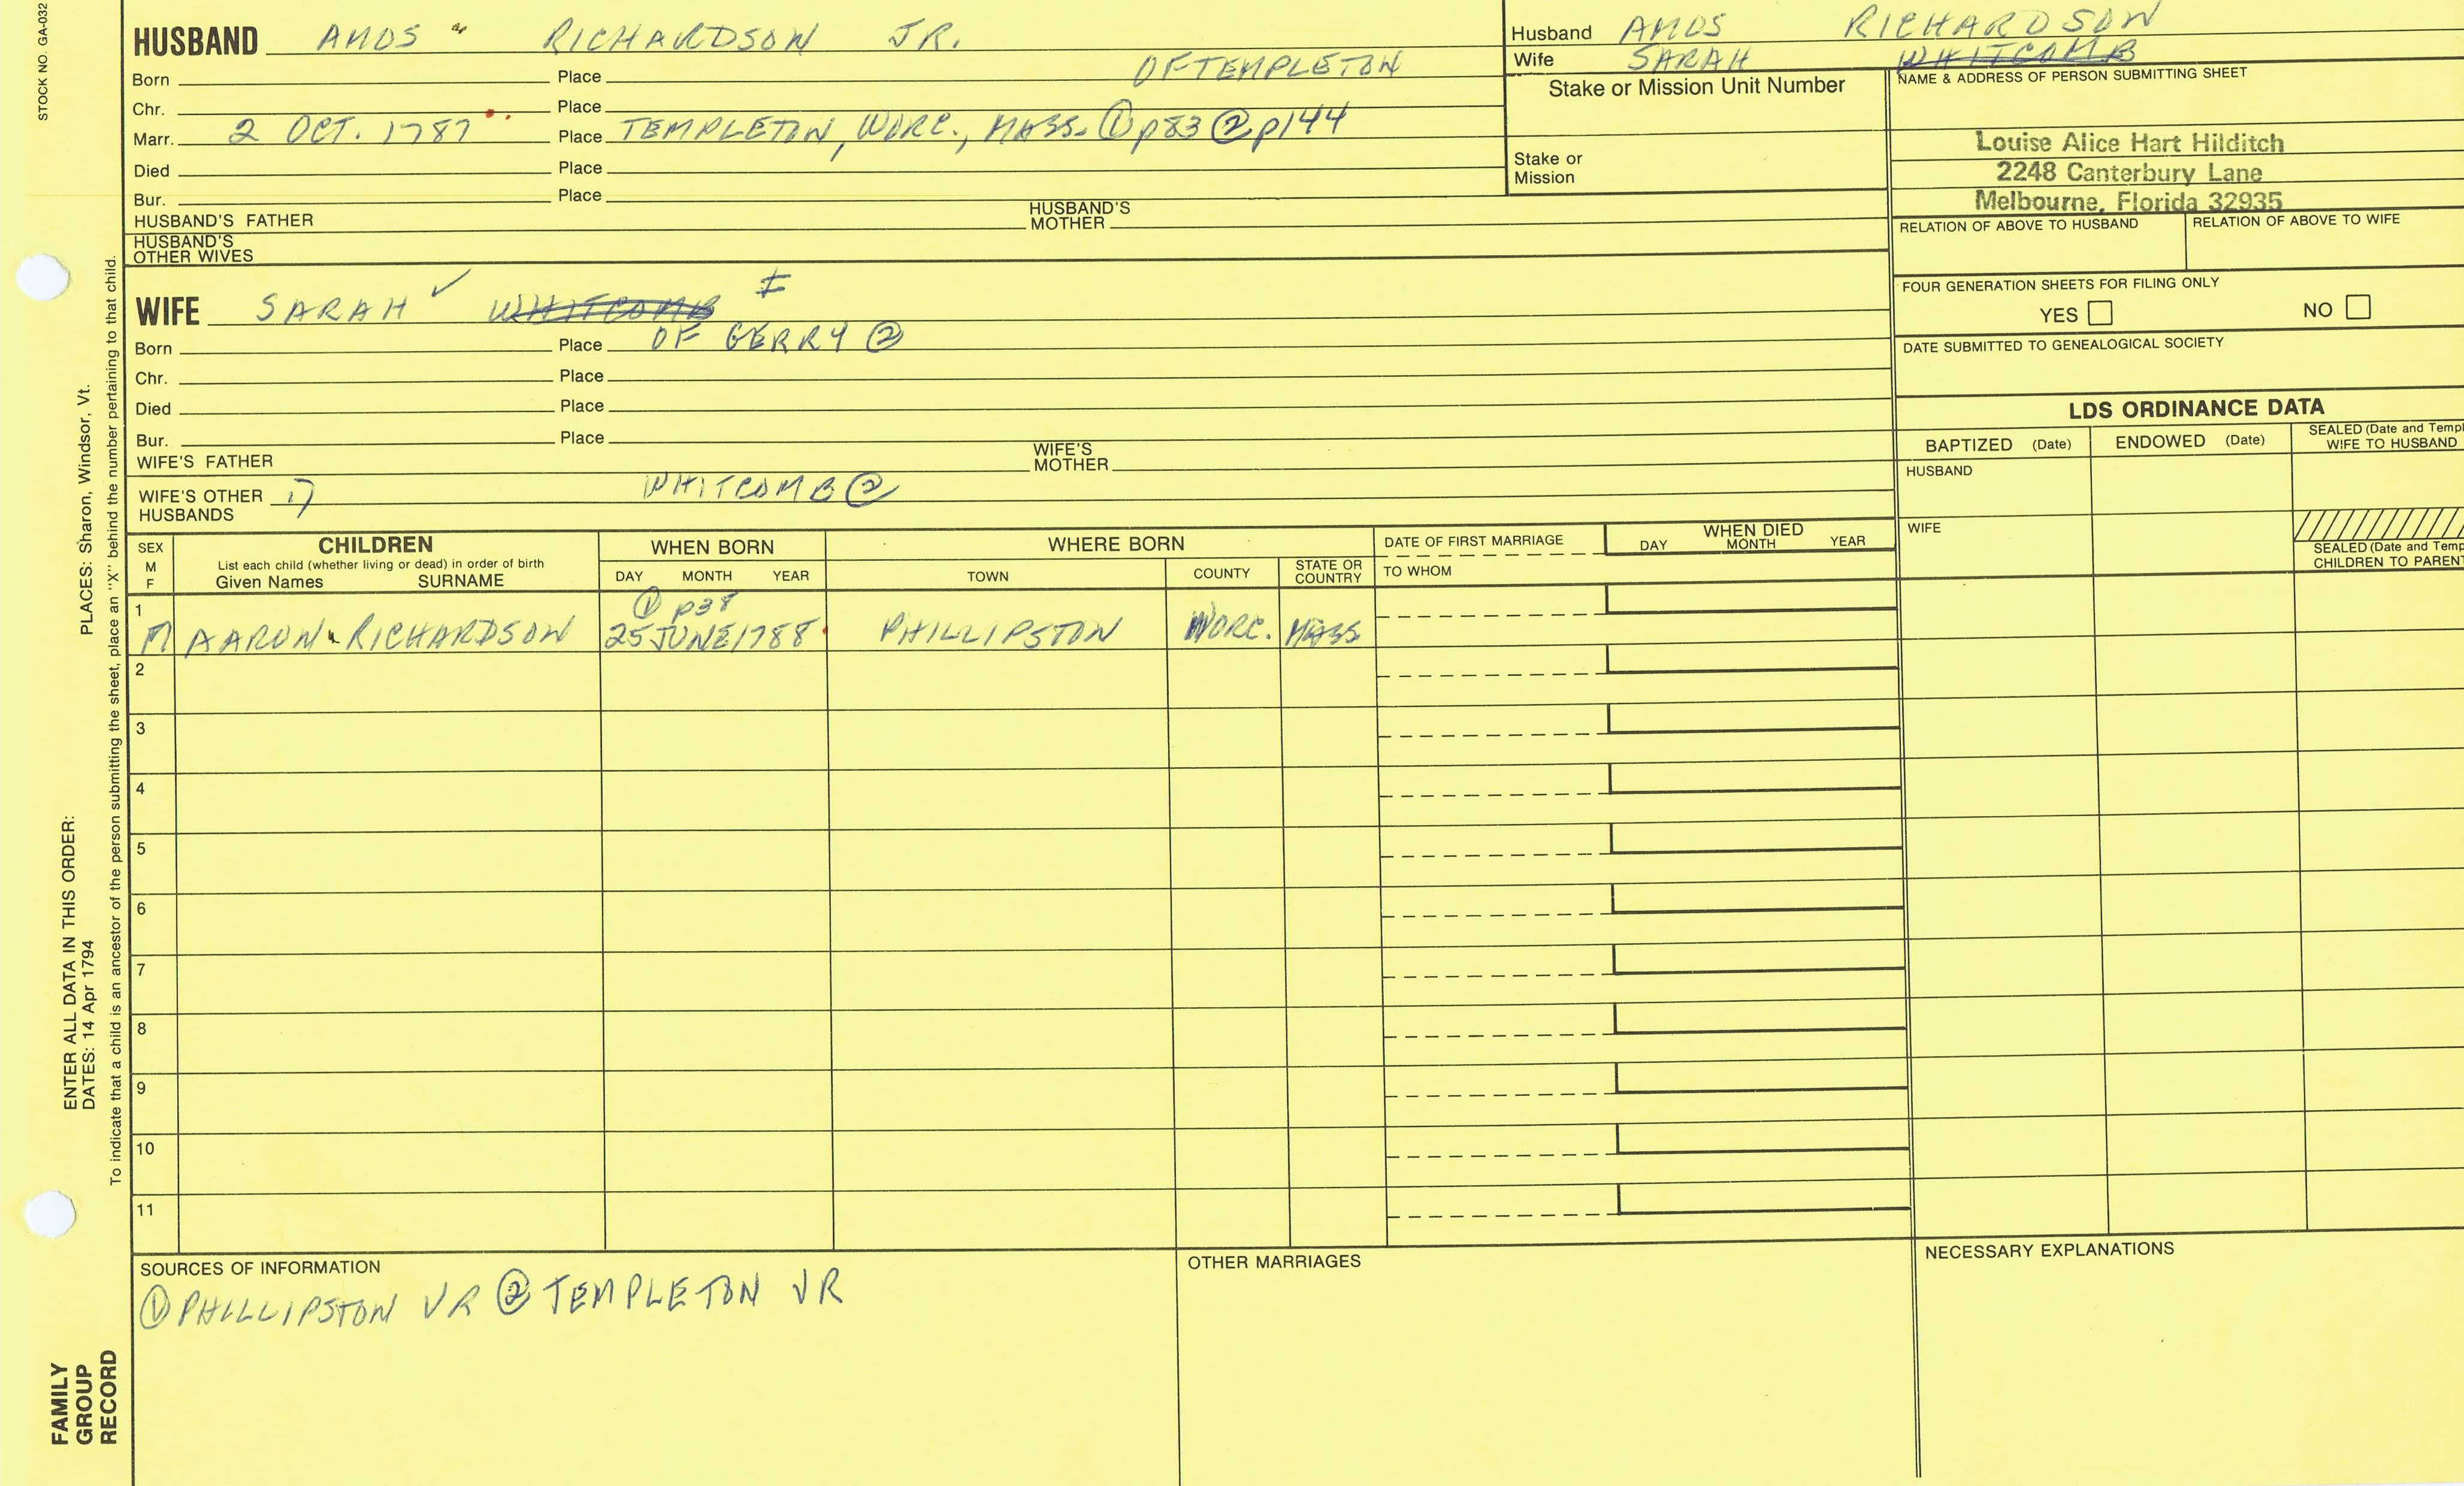 STOCK NO. GA-032
HUSBAND AMOS RICHARDSON JR.
Born Place OF TEMPLETON
Chr. Place
Marr. 2 OCT. 1787 Place TEMPLETON, WORC., MASS. ① p83 ② p144
Died Place
Bur. Place
HUSBAND'S FATHER HUSBAND'S MOTHER
HUSBAND'S OTHER WIVES
Husband AMOS RICHARDSON
Wife SARAH WHITCOMB
Stake or Mission Unit Number
Stake or Mission
NAME & ADDRESS OF PERSON SUBMITTING SHEET
Louise Alice Hart Hilditch
2248 Canterbury Lane
Melbourne, Florida 32935
RELATION OF ABOVE TO HUSBAND RELATION OF ABOVE TO WIFE
FOUR GENERATION SHEETS FOR FILING ONLY
YES NO
DATE SUBMITTED TO GENEALOGICAL SOCIETY
WIFE SARAH ✓ WHITCOMB
Born Place OF GERRY ②
Chr. Place
Died Place
Bur. Place
WIFE'S FATHER WIFE'S MOTHER
WIFE'S OTHER HUSBANDS 1) WHITCOMB ②
LDS ORDINANCE DATA
BAPTIZED (Date) ENDOWED (Date) SEALED (Date and Templ
WIFE TO HUSBAND
HUSBAND
WIFE
SEALED (Date and Temp
CHILDREN TO PARENT
SEX M F
CHILDREN
List each child (whether living or dead) in order of birth
Given Names SURNAME
WHEN BORN
DAY MONTH YEAR
WHERE BORN
TOWN COUNTY STATE OR COUNTRY
DATE OF FIRST MARRIAGE
TO WHOM
WHEN DIED
DAY MONTH YEAR
1 ① p38
M AARON RICHARDSON 25 JUNE 1788 PHILLIPSTON WORC. MASS
2
3
4
5
6
7
8
9
10
11
SOURCES OF INFORMATION
① PHILLIPSTON VR ② TEMPLETON VR
OTHER MARRIAGES
NECESSARY EXPLANATIONS
PLACES: Sharon, Windsor, Vt.
ENTER ALL DATA IN THIS ORDER:
DATES: 14 Apr 1794
To indicate that a child is an ancestor of the person submitting the sheet, place an "X" behind the number pertaining to that child.
FAMILY
GROUP
RECORD